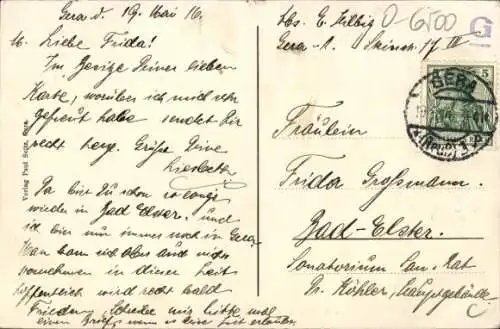 Gera d. 19. Mai 16.
M. Liebe Frida!
Im Besitze Deiner lieben
Karte, worüber ich mich sehr
gefreut habe sendet Dir
recht herzl. Grüße Deine
Liesbeth
Da bist Du schon so lange
wieder in Bad Elster, und
ich bin nur immer noch in Gera.
Man kann sich aber auch nichts
vornehmen in dieser Zeit
hoffentlich wird recht bald
Frieden. Schreibe mir bitte mal
einen Brief, wenn es Deine Zeit erlaubt.
Verlag Paul Gera.
Abs. E. Helbig
Gera
O-6500
G
5
GERA
Fräulein
Frida Großmann.
Bad-Elster.
Sanatorium San. Rat
Dr. Köhler, Hauptgebäude